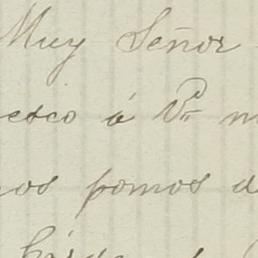 Muy Señor
esco á Vr m
nos pomos d